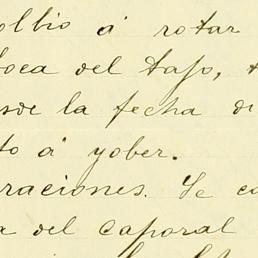 olbio á rotar
oca del tajo, t
sde la fecha de
to á yober.
raciones. Se co
a del caporal